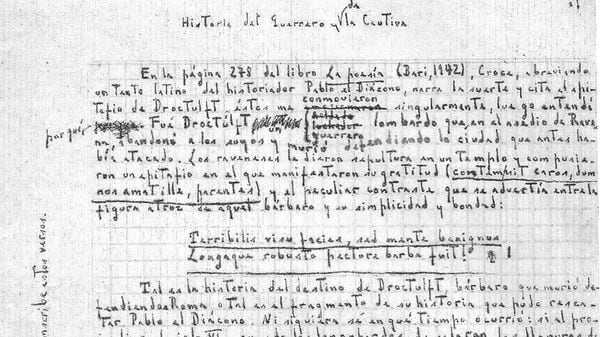 de
Historia del Guerrero y la Cautiva
En la página 278 del libro La poesia (Bari, 1942), Croce, abreviando
un texto latino del historiador Pablo el Diácono, narra la suerte y cita el epi-
conmovieron
tafio de Droctulft; éstos me singularmente, luego entendí
por qué. Fue Droctulft un guerrero lombardo que en el asedio de Rave-
na, abandonó a los suyos y murió defendiendo la ciudad que antes ha-
bía atacado. Los raveneses le dieron sepultura en un templo y compusie-
ron un epitafio en el que manifestaron su gratitud (contempsit caros, dum
nos amat ille, parentes) y el peculiar contraste que se advertía entre la
figura atroz de aquel bárbaro y su simplicidad y bondad:
Terribilis visu facies, sed mente benignus
Longaque robusto pectore barba fuit! 1
Tal es la historia del destino de Droctulft, bárbaro que murió de-
fendiendo Roma o tal es el fragmento de su historia que pudo resca-
tar Pablo el Diácono. Ni siquiera sé en qué tiempo ocurrió: si al pro-
nscribe estos versos.